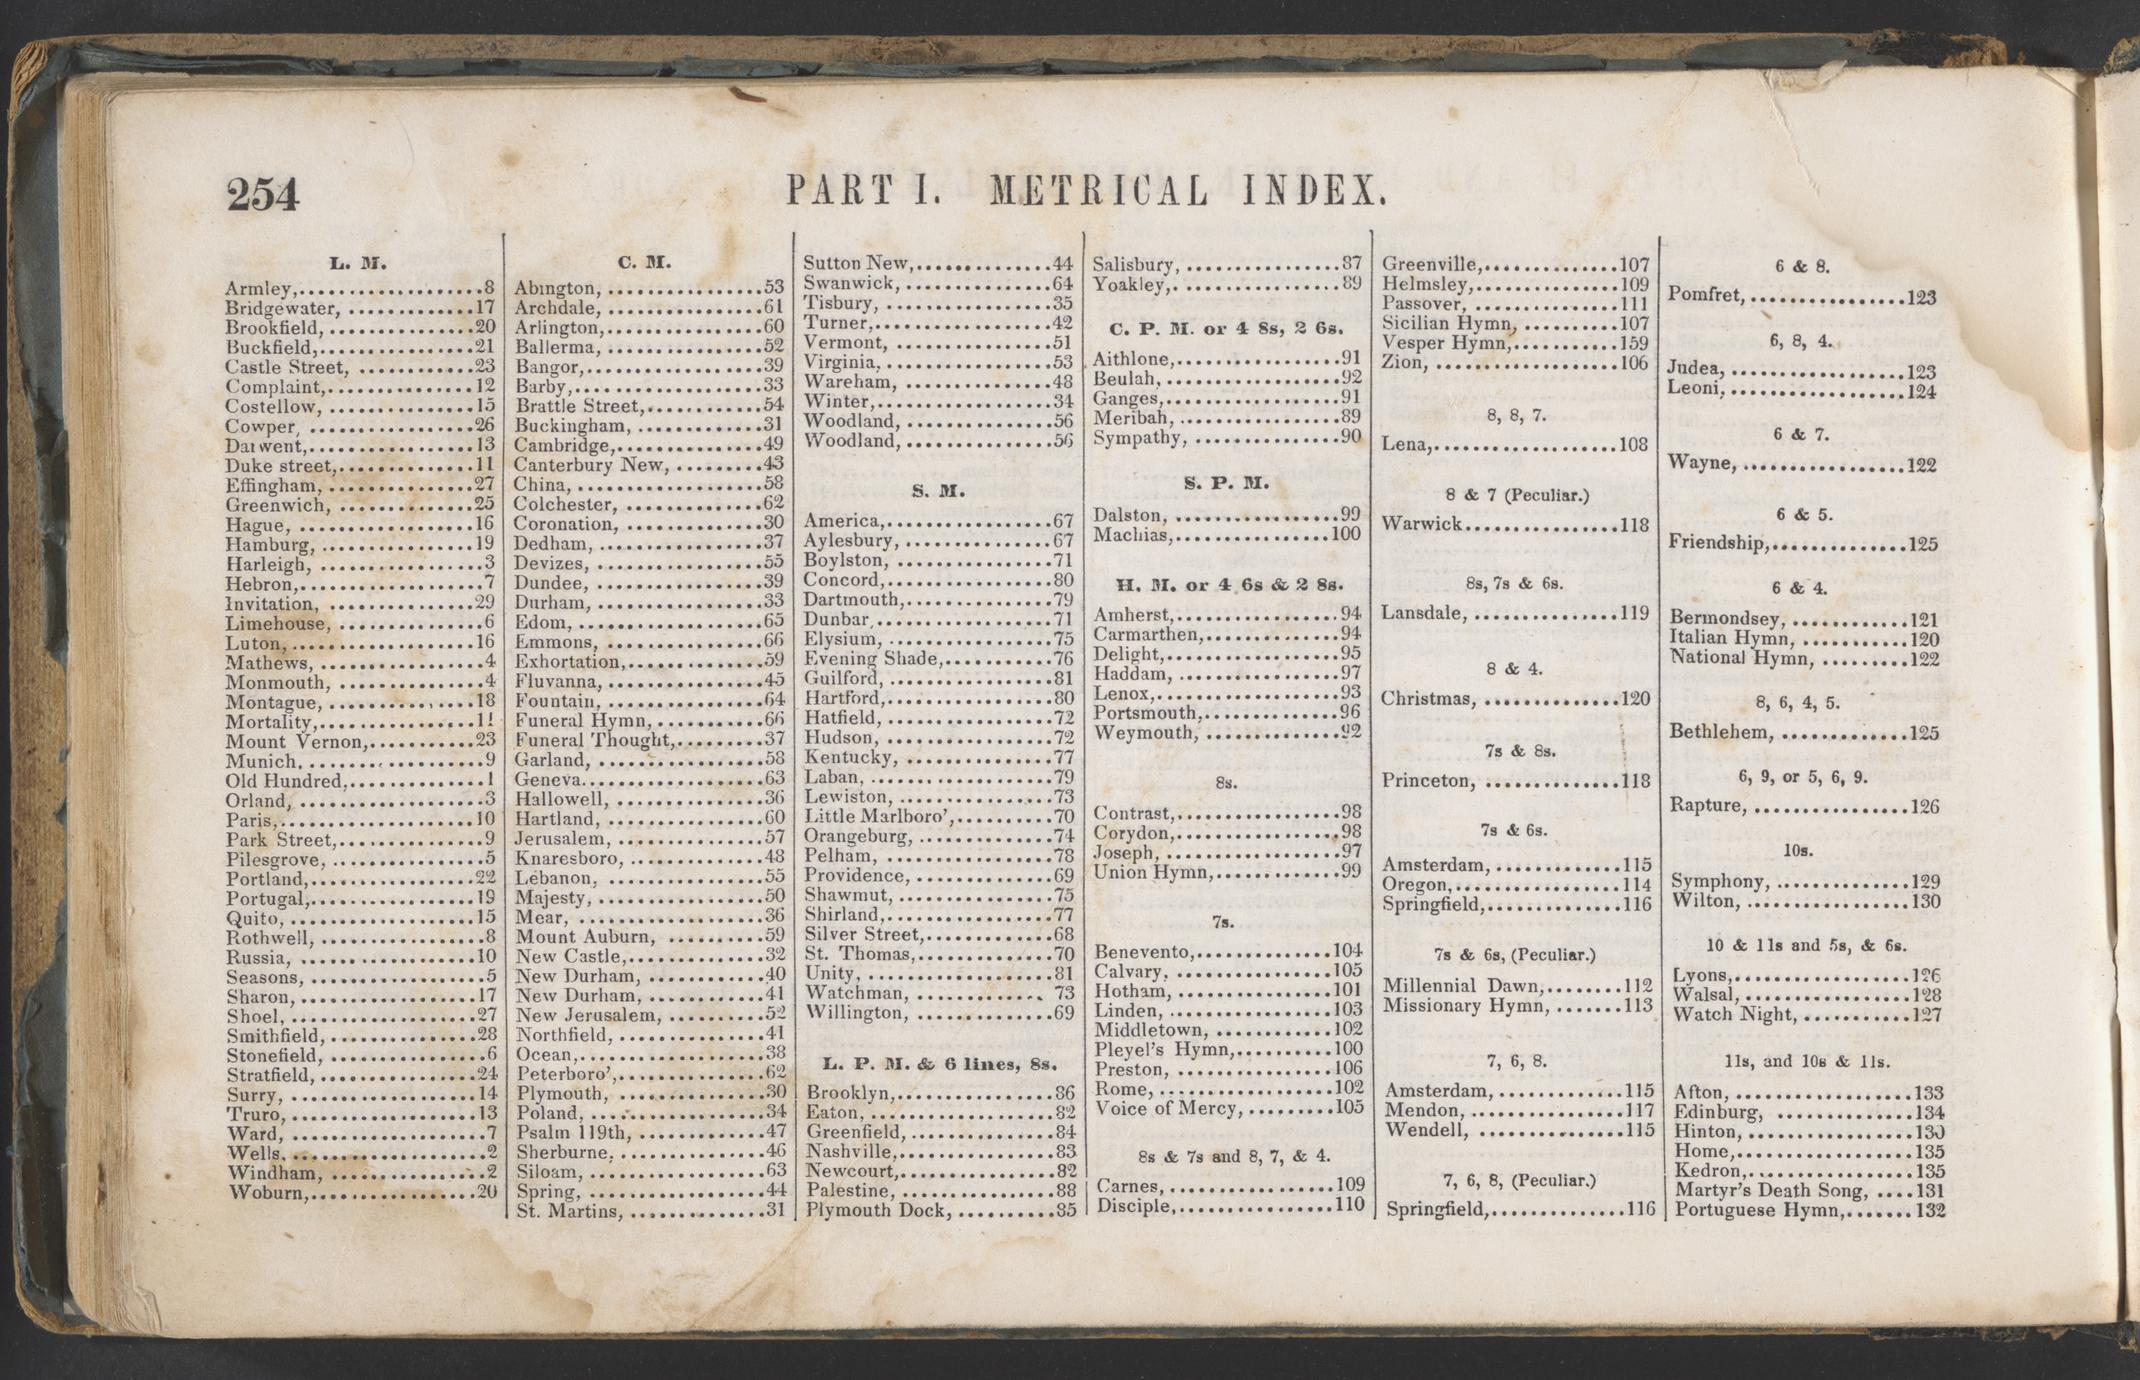 254
PART I. METRICAL INDEX.
L. M.
Armley,....................8
Bridgewater, .............17
Brookfield, ...............20
Buckfield,.................21
Castle Street, ............23
Complaint,................12
Costellow, ................15
Cowper, ..................26
Darwent,..................13
Duke street,...............11
Effingham, ...............27
Greenwich, ..............25
Hague, ...................16
Hamburg, ................19
Harleigh, ..................3
Hebron,....................7
Invitation, ................29
Limehouse, ................6
Luton,....................16
Mathews, ..................4
Monmouth, ................4
Montague, ................18
Mortality,.................11
Mount Vernon,............23
Munich, ...................9
Old Hundred,...............1
Orland, ....................3
Paris,.....................10
Park Street,................9
Pilesgrove, .................5
Portland,..................22
Portugal,..................19
Quito, ....................15
Rothwell, ..................8
Russia, ...................10
Seasons, ...................5
Sharon, ...................17
Shoel, ....................27
Smithfield, ................28
Stonefield, .................6
Stratfield, .................24
Surry, ....................14
Truro, ....................13
Ward, .....................7
Wells, .....................2
Windham, .................2
Woburn,..................20
C. M.
Abington, ................53
Archdale, .................61
Arlington,.................60
Ballerma, .................52
Bangor,...................39
Barby,....................33
Brattle Street,.............54
Buckingham, .............31
Cambridge,................49
Canterbury New, .........43
China, ....................58
Colchester, ...............62
Coronation, ..............30
Dedham, .................37
Devizes, ..................55
Dundee, ..................39
Durham, .................33
Edom, ....................65
Emmons, .................66
Exhortation,..............59
Fluvanna, ................45
Fountain, .................64
Funeral Hymn, ...........66
Funeral Thought,.........37
Garland, .................58
Geneva...................63
Hallowell, ...............36
Hartland, ................60
Jerusalem, ...............57
Knaresboro, ..............48
Lebanon, ................55
Majesty, .................50
Mear, ....................36
Mount Auburn, ..........59
New Castle,..............32
New Durham, ............40
New Durham, ............41
New Jerusalem, ..........52
Northfield, ...............41
Ocean,....................38
Peterboro',................62
Plymouth, ...............30
Poland, ..................34
Psalm 119th, .............47
Sherburne, ...............46
Siloam, ..................63
Spring, ...................44
St. Martins, ..............31
Sutton New,..............44
Swanwick, ...............64
Tisbury, .................35
Turner,...................42
Vermont, ................51
Virginia, .................53
Wareham, ...............48
Winter,...................34
Woodland, ...............56
Woodland, ...............56
S. M.
America,.................67
Aylesbury, ...............67
Boylston, ................71
Concord,.................80
Dartmouth,...............79
Dunbar,..................71
Elysium, .................75
Evening Shade,...........76
Guilford, .................81
Hartford,.................80
Hatfield, .................72
Hudson, .................72
Kentucky, ...............77
Laban, ...................79
Lewiston, ................73
Little Marlboro',..........70
Orangeburg, .............74
Pelham, .................78
Providence, ..............69
Shawmut, ................75
Shirland,.................77
Silver Street,.............68
St. Thomas,..............70
Unity, ...................81
Watchman, .............. 73
Willington, ..............69
L. P. M. & 6 lines, 8s.
Brooklyn,................86
Eaton, ...................82
Greenfield, ...............84
Nashville,................83
Newcourt,................82
Palestine, ................88
Plymouth Dock, ..........85
Salisbury, ................87
Yoakley,..................89
C. P. M. or 4 8s, 2 6s.
Aithlone,.................91
Beulah, ..................92
Ganges,..................91
Meribah, .................89
Sympathy, ...............90
S. P. M.
Dalston, .................99
Machias,................100
H. M. or 4 6s & 2 8s.
Amherst,.................94
Carmarthen,..............94
Delight,..................95
Haddam, .................97
Lenox,...................93
Portsmouth,..............96
Weymouth, ..............92
8s.
Contrast,.................98
Corydon,.................98
Joseph, ..................97
Union Hymn,.............99
7s.
Benevento,..............104
Calvary, ................105
Hotham, ................101
Linden, .................103
Middletown, ............102
Pleyel's Hymn,..........100
Preston, ................106
Rome, ..................102
Voice of Mercy, .........105
8s & 7s and 8, 7, & 4.
Carnes, .................109
Disciple,................110
Greenville,..............107
Helmsley,...............109
Passover, ...............111
Sicilian Hymn, ..........107
Vesper Hymn,...........159
Zion, ...................106
8, 8, 7.
Lena,...................108
8 & 7 (Peculiar.)
Warwick................118
8s, 7s & 6s.
Lansdale, ...............119
8 & 4.
Christmas, ..............120
7s & 8s.
Princeton, ..............118
7s & 6s.
Amsterdam, .............115
Oregon,.................114
Springfield,..............116
7s & 6s, (Peculiar.)
Millennial Dawn,........112
Missionary Hymn, .......113
7, 6, 8.
Amsterdam, .............115
Mendon, ................117
Wendell, ...............115
7, 6, 8, (Peculiar.)
Springfield,..............116
6 & 8.
Pomfret, ................123
6, 8, 4.
Judea, ..................123
Leoni, ..................124
6 & 7.
Wayne, .................122
6 & 5.
Friendship,..............125
6 & 4.
Bermondsey, ............121
Italian Hymn, ...........120
National Hymn, .........122
8, 6, 4, 5.
Bethlehem, .............125
6, 9, or 5, 6, 9.
Rapture, ................126
10s.
Symphony, ..............129
Wilton, .................130
10 & 11s and 5s, & 6s.
Lyons,..................126
Walsal, .................128
Watch Night, ...........127
11s, and 10s & 11s.
Afton, ..................133
Edinburg, ..............134
Hinton, .................130
Home,..................135
Kedron,.................135
Martyr's Death Song, ....131
Portuguese Hymn,.......132